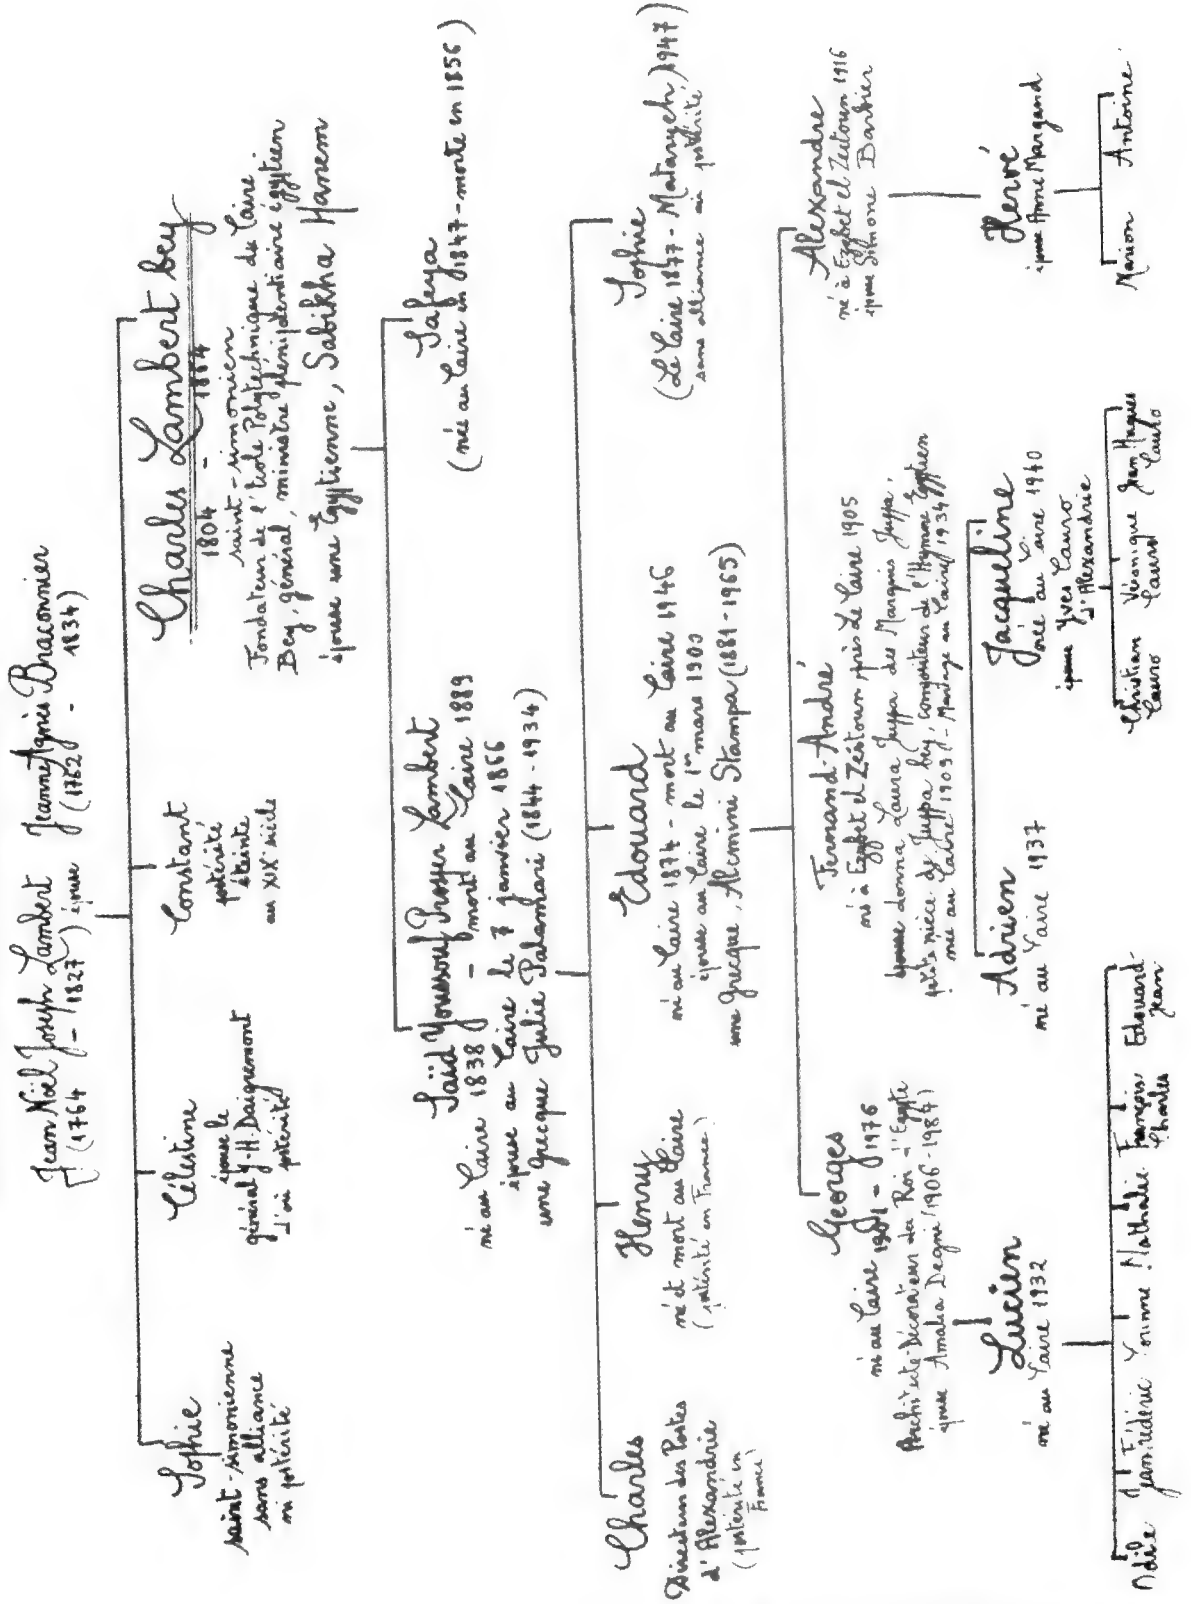 Jean Noël Joseph Lambert
(1764 - 1827) épouse
Jeanne Agnès Braconnier
(1762 - 1834)
Sophie
saint-simonienne
sans alliance
ni postérité
Célestine
épouse le
général Y. H. Daigremont
d'où postérité
Constant
postérité
éteinte
au XIXe siècle
Charles Lambert bey
1804 - 1864
saint-simonien
Fondateur de l'École Polytechnique du Caire.
Bey, général, ministre plénipotentiaire égyptien
épouse une Égyptienne, Sabikha Hanem
Saïd Youssouf Prosper Lambert
né au Caire 1838 - mort au Caire 1889
épouse au Caire le 7 janvier 1866
une grecque Julie Palamari (1844-1934)
Safeya
(née au Caire en 1847 - morte en 1856)
Charles
Directeur des Postes
d'Alexandrie
(postérité en
France)
Henry
né et mort au Caire
(postérité en France)
Edouard
né au Caire 1874 - mort au Caire 1946
épouse au Caire le 1er mars 1900
une grecque, Alcmini Stampa (1881-1965)
Sophie
(Le Caire 1877 - Mataryeh 1947)
sans alliance ni postérité
Georges
né au Caire 1901 - 1976
Architecte-Décorateur du Roi d'Egypte
épouse Amalia Degni (1906-1987)
Fernand-André
né à Ezbet el Zeitoun près Le Caire 1905
épouse donna Laura Juppa des Marquis Juppa,
petite nièce de Juppa bey, compositeur de l'Hymne Egyptien
née au Caire 1909 - Mariage au Caire 1934
Alexandre
né à Ezbet el Zeitoun 1916
épouse Simone Barbier
Lucien
né au Caire 1932
Adrien
né au Caire 1937
Jacqueline
née au Caire 1940
épouse Yves Cauro
d'Alexandrie
Hervé
épouse Anne Margand
Odile
Jean Frédéric
Corinne
Nathalie
François
Charles
Edouard
Jean
Christian
Cauro
Véronique
Cauro
Jean Hugues
Cauro
Marion
Antoine